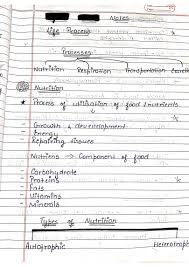 Notes
Life Process
Processes
Nutrition Respiration Transportation Excret
Nutrition
Process of utilisation of food / nutrients
- Growth & development
- Energy
- Repairing tissues
Nutriens → Component of food
- Carbohydrate
- Proteins
- Fats
- Vitamins
- Minerals
Types of Nutrition
Autotrophic Heterotroph